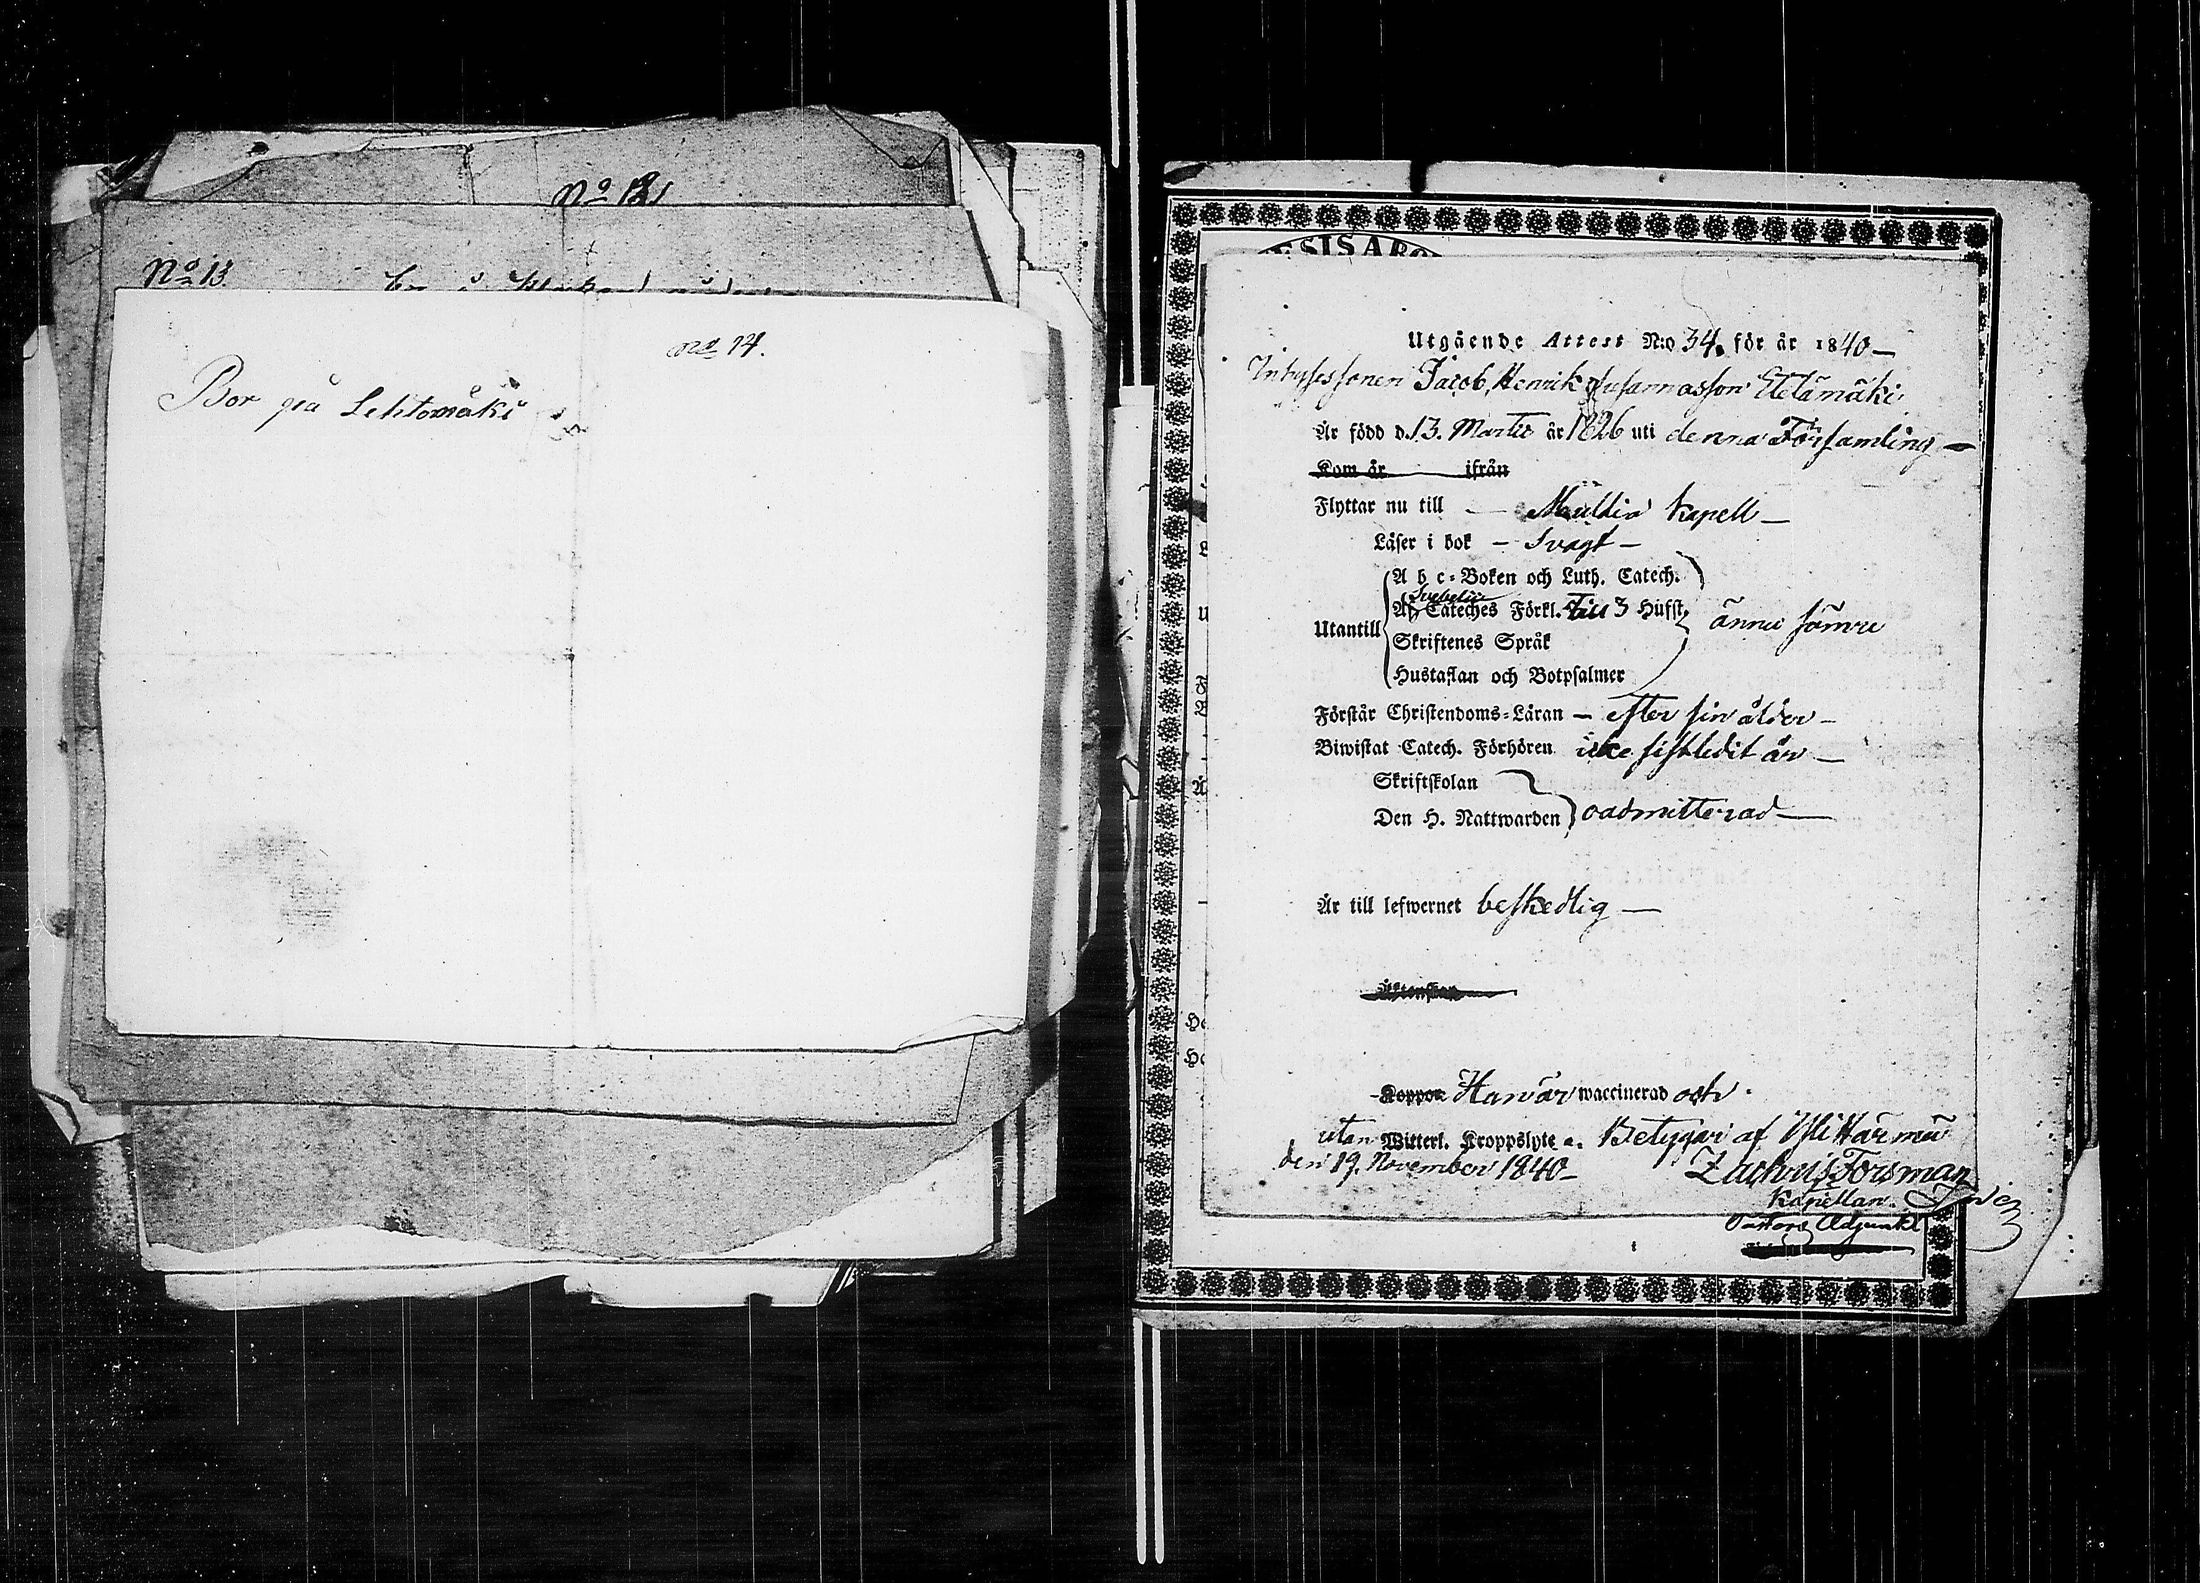 No 13
No 14.
Bor på Lehtomäki
Utgående Attest N:o 34. för år 1840 —
Inhysessonen Jacob Henrik Johannasson Etelämäki
Är född d. 13. Martii år 1826 uti denna Församling —
Kom år ifrån
Flyttar nu till — Kapell —
Läser i bok — Svagt —
A b c-Boken och Luth. Catech.
Svebelii
Cateches Förkl. Till 3 Hufst.
Utantill
ännu sämre
Skriftenes Språk
Hustaflan och Botpsalmer
Förstår Christendoms-Läran — efter sin ålder —
Biwistat Catech. Förhören icke sistledit år —
Skriftskolan
Den H. Nattwarden oadmitterad —
Är till lefwernet beskedlig —
Koppor Han är waccinerad och
utan Witterl. Kroppslyte a. Betygar af Ylihärmä
den 19. November 1840 — Zachris Forsman
Kapellan.
Pastors Adjunkt